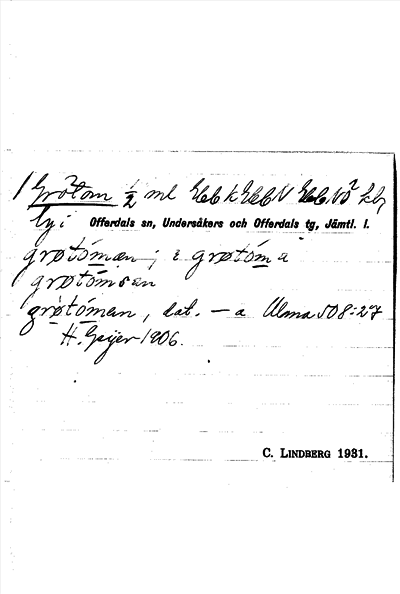 Grötom 1/2 ml
by i Offerdals sn, Undersåkers och Offerdals tg, Jämtl. l.
grøtóman ; i grøtóm a
grøtómsen
grøtóman, dat. – a Ulma 508:27
H. Geijer 1906.
C. LINDBERG 1931.